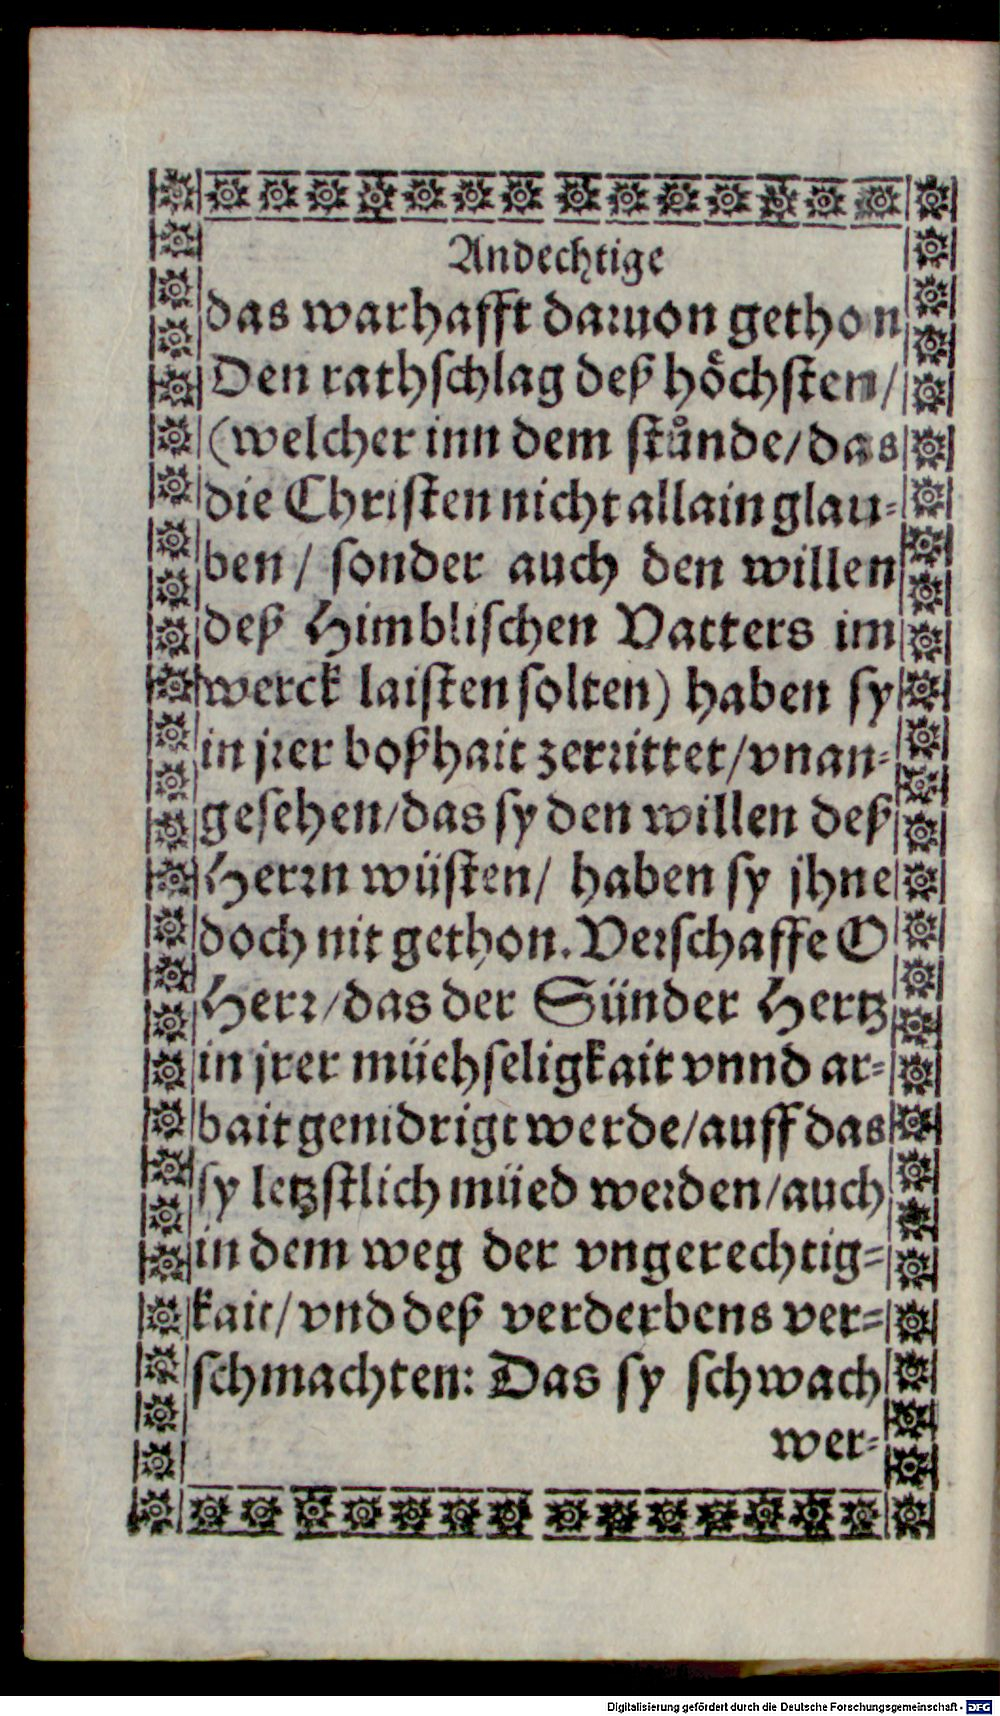 Andechtige
das warhafft daruon gethon
Den rathschlag deß höchsten/
(welcher inn dem stůnde/das
die Christen nicht allain glau-
ben/ sonder auch den willen
deß Himblischen Vatters im
werck laisten solten) haben sy
in jrer boßhait zerrittet/vnan-
gesehen/das sy den willen deß
Herrn wüsten/ haben sy jhne
doch nit gethon. Verschaffe O
Herr/das der Sünder Hertz
in jrer müehseligkait vnnd ar-
bait genidrigt werde/auff das
sy letzstlich müed werden/auch
in dem weg der vngerechtig-
kait/vnd deß verderbens ver-
schmachten: Das sy schwach
wer-
Digitalisierung gefördert durch die Deutsche Forschungsgemeinschaft - DFG